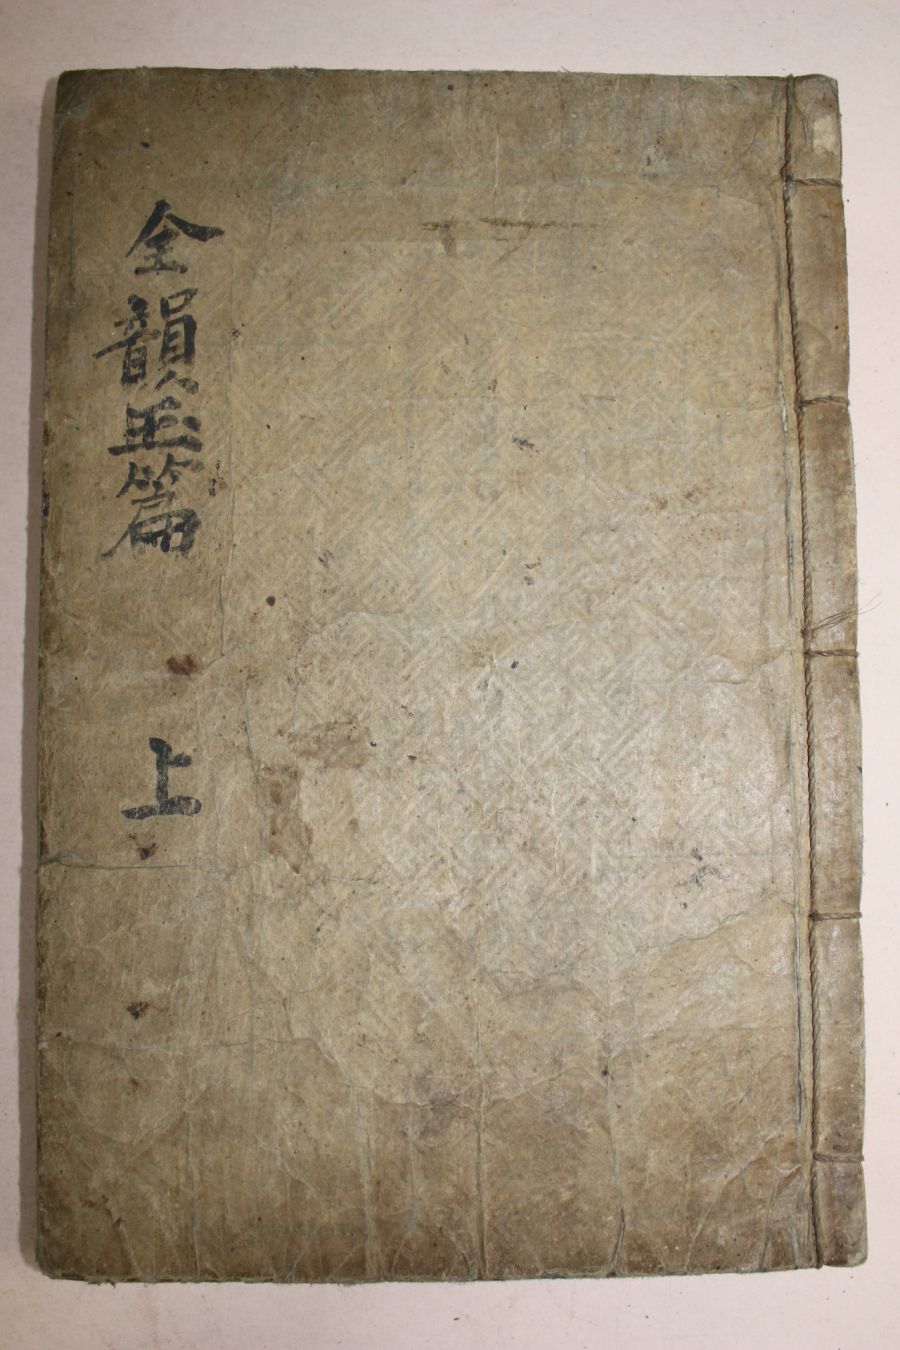 全韻玉篇
上